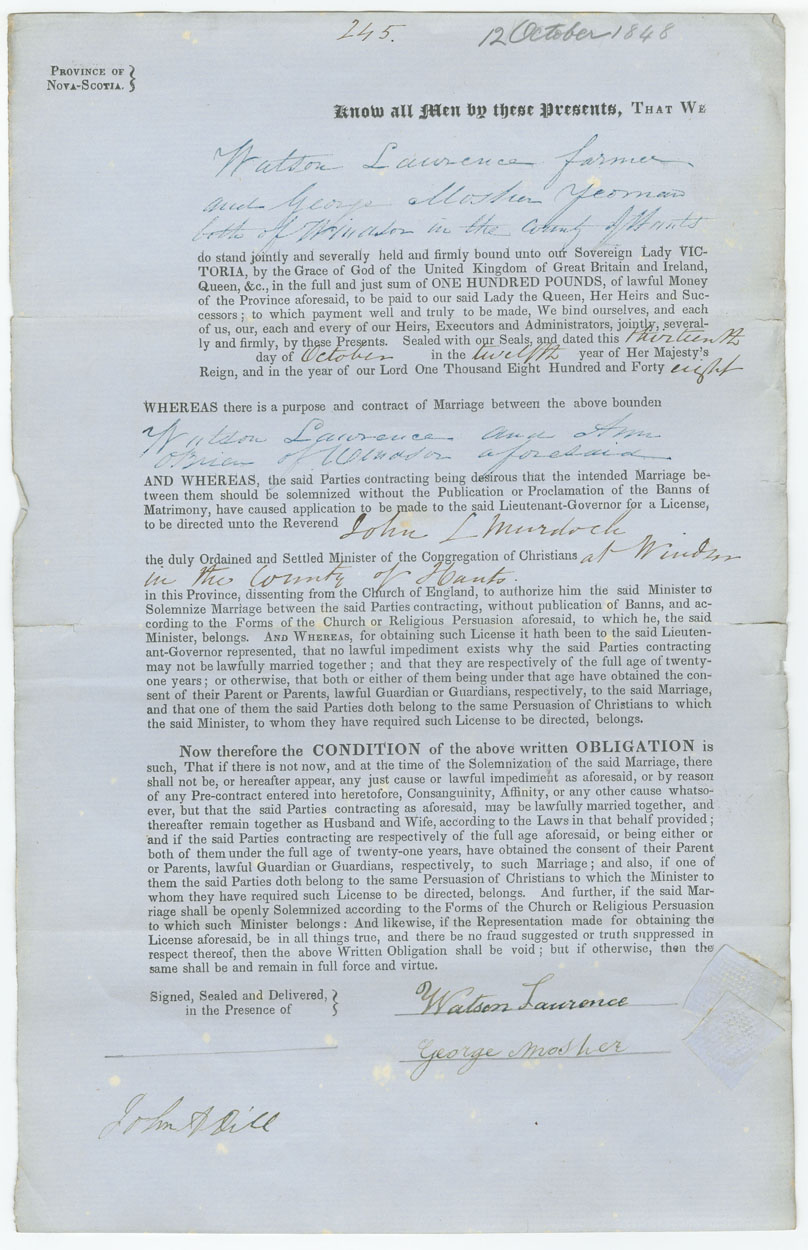 245.
12 October 1848
PROVINCE OF
NOVA-SCOTIA.
Know all Men by these Presents, THAT WE
Watson Lawrence farmer
and George Mosher Yeoman
both of Windsor in the County of Hants
do stand jointly and severally held and firmly bound unto our Sovereign Lady VIC-
TORIA, by the Grace of God of the United Kingdom of Great Britain and Ireland,
Queen, &c., in the full and just sum of ONE HUNDRED POUNDS, of lawful Money
of the Province aforesaid, to be paid to our said Lady the Queen, Her Heirs and Suc-
cessors; to which payment well and truly to be made, We bind ourselves, and each
of us, our, each and every of our Heirs, Executors and Administrators, jointly, several-
ly and firmly, by these Presents. Sealed with our Seals, and dated this thirteenth
day of October in the twelfth year of Her Majesty's
Reign, and in the year of our Lord One Thousand Eight Hundred and Forty eight
WHEREAS there is a purpose and contract of Marriage between the above bounden
Watson Lawrence and Ann
OBrien of Windsor aforesaid
AND WHEREAS, the said Parties contracting being desirous that the intended Marriage be-
tween them should be solemnized without the Publication or Proclamation of the Banns of
Matrimony, have caused application to be made to the said Lieutenant-Governor for a License,
to be directed unto the Reverend John L Murdoch
the duly Ordained and Settled Minister of the Congregation of Christians at Windsor
in the County of Hants.
in this Province, dissenting from the Church of England, to authorize him the said Minister to
Solemnize Marriage between the said Parties contracting, without publication of Banns, and ac-
cording to the Forms of the Church or Religious Persuasion aforesaid, to which he, the said
Minister, belongs. AND WHEREAS, for obtaining such License it hath been to the said Lieuten-
ant-Governor represented, that no lawful impediment exists why the said Parties contracting
may not be lawfully married together; and that they are respectively of the full age of twenty-
one years; or otherwise, that both or either of them being under that age have obtained the con-
sent of their Parent or Parents, lawful Guardian or Guardians, respectively, to the said Marriage,
and that one of them the said Parties doth belong to the same Persuasion of Christians to which
the said Minister, to whom they have required such License to be directed, belongs.
Now therefore the CONDITION of the above written OBLIGATION is
such, That if there is not now, and at the time of the Solemnization of the said Marriage, there
shall not be, or hereafter appear, any just cause or lawful impediment as aforesaid, or by reason
of any Pre-contract entered into heretofore, Consanguinity, Affinity, or any other cause whatso-
ever, but that the said Parties contracting as aforesaid, may be lawfully married together, and
thereafter remain together as Husband and Wife, according to the Laws in that behalf provided;
and if the said Parties contracting are respectively of the full age aforesaid, or being either or
both of them under the full age of twenty-one years, have obtained the consent of their Parent
or Parents, lawful Guardian or Guardians, respectively, to such Marriage; and also, if one of
them the said Parties doth belong to the same Persuasion of Christians to which the Minister to
whom they have required such License to be directed, belongs. And further, if the said Mar-
riage shall be openly Solemnized according to the Forms of the Church or Religious Persuasion
to which such Minister belongs: And likewise, if the Representation made for obtaining the
License aforesaid, be in all things true, and there be no fraud suggested or truth suppressed in
respect thereof, then the above Written Obligation shall be void; but if otherwise, then the
same shall be and remain in full force and virtue.
Signed, Sealed and Delivered,
in the Presence of
Watson Laurence
George Mosher
John A Dill